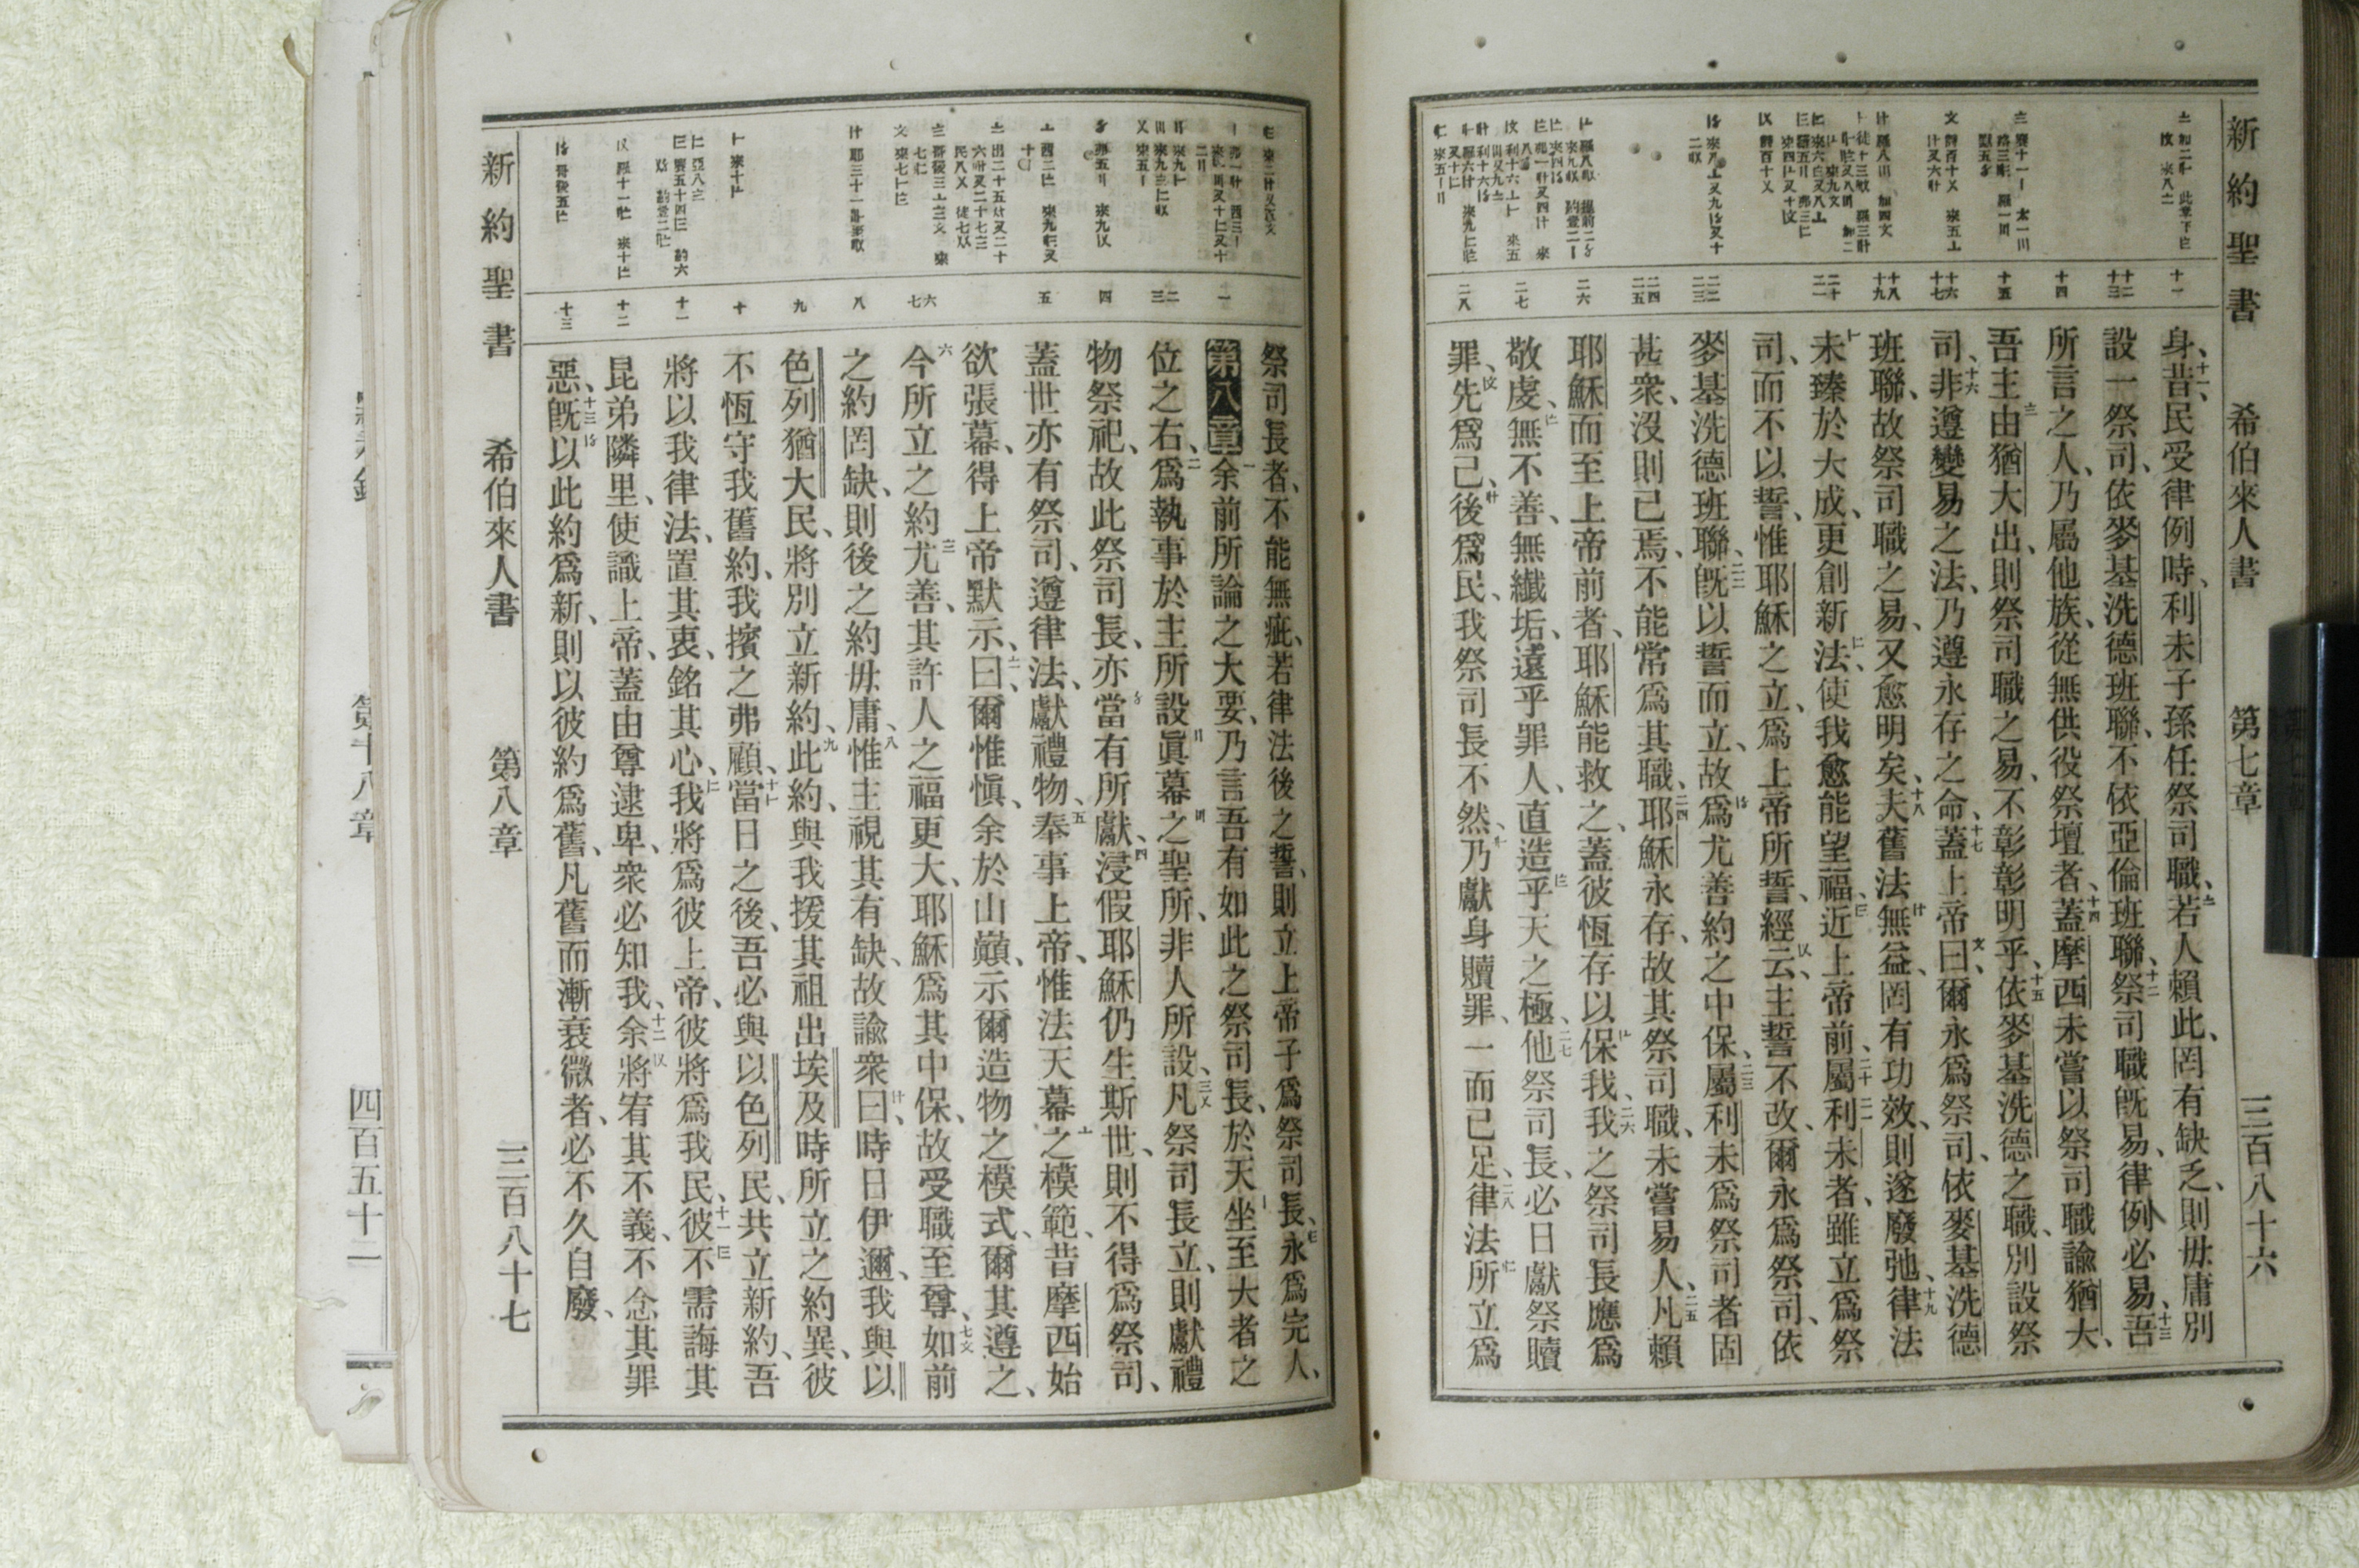 新約聖書 希伯來人書 第七章 三百八十六
十一
十二 十三
十四
十五
十六 十七
十八 十九
二十 二一
二二 二三
二四 二五
二六
二七
二八
身、十一、昔民受律例時、利未子孫任祭司職、若人賴此、罔有缺乏、則毋庸別
設一祭司、依麥基洗德班聯、不依亞倫班聯、十二祭司職旣易、律例必易、十三吾
所言之人、乃屬他族、從無供役祭壇者、十四蓋摩西未嘗以祭司職諭猶大、
吾主由猶大出、則祭司職之易、不彰彰明乎、十五依麥基洗德之職、別設祭
司、十六非遵變易之法、乃遵永存之命、十七蓋上帝曰、爾永爲祭司、依麥基洗德
班聯、故祭司職之易、又愈明矣、十八夫舊法無益、罔有功效、則遂廢弛、十九律法
未臻於大成、更創新法、使我愈能望福、近上帝前、二十屬利未者、二一雖立爲祭
司、而不以誓、惟耶穌之立、爲上帝所誓、經云、主誓不改、爾永爲祭司、依
麥基洗德班聯、二二旣以誓而立、故爲尤善約之中保、二三屬利未爲祭司者固
甚衆、沒則已焉、不能常爲其職、二四耶穌永存、故其祭司職、未嘗易人、二五凡賴
耶穌而至上帝前者、耶穌能救之、蓋彼恆存以保我、二六我之祭司長應爲
敬虔、無不善、無纖垢、遠乎罪人、直造乎天之極、二七他祭司長、必日獻祭贖
罪、先爲己、後爲民、我祭司長不然、乃獻身贖罪、一而已足、二八律法所立爲
一
二 三
四
五
六 七
八
九
十
十一
十二
十三
祭司長者、不能無疵、若律法後之誓、則立上帝子爲祭司長、永爲完人、
第八章 一余前所論之大要、乃言吾有如此之祭司長、於天坐至大者之
位之右、二爲執事於主所設眞幕之聖所、非人所設、三凡祭司長立、則獻禮
物祭祀、故此祭司長、亦當有所獻、四浸假耶穌仍生斯世、則不得爲祭司、
蓋世亦有祭司、遵律法、獻禮物、五奉事上帝、惟法天幕之模範、昔摩西始
欲張幕、得上帝默示、曰、爾惟愼、余於山巔、示爾造物之模式、爾其遵之、
六今所立之約尤善、其許人之福更大、耶穌爲其中保、故受職至尊、七如前
之約罔缺、則後之約毋庸、八惟主視其有缺、故諭衆曰、時日伊邇、我與以
色列猶大民、將別立新約、九此約、與我援其祖出埃及時所立之約異、彼
不恆守我舊約、我擯之弗顧、十當日之後、吾必與以色列民、共立新約、吾
將以我律法、置其衷、銘其心、我將爲彼上帝、彼將爲我民、十一彼不需誨其
昆弟隣里、使識上帝、蓋由尊逮卑、衆必知我、十二余將宥其不義、不念其罪
惡、十三旣以此約爲新、則以彼約爲舊、凡舊而漸衰微者、必不久自廢、
新約聖書 希伯來人書 第八章 三百八十七
第十八章 四百五十二